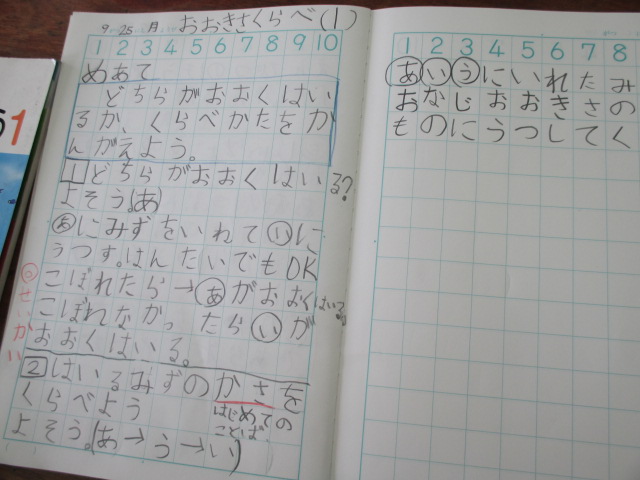 9 25 月 おおきさくらべ(1)
1 2 3 4 5 6 7 8 9 10
めあて
どちらがおおくはい
るか、くらべかたをか
んがえよう。
1 どちらがおおくはいる?
よそう(あ)
あにみずをいれていに
うつす。はんたいでもOK
こぼれたら→あがおおくはいる。
こぼれなかったらいが
おおくはいる。
せいかい
2 はいるみずのかさを
くらべよう
はじめての
ことば
よそう。(あ→う→い)
1 2 3 4 5 6 7 8
あいうにいれたみ
おなじおおきさの
ものにうつしてく
1